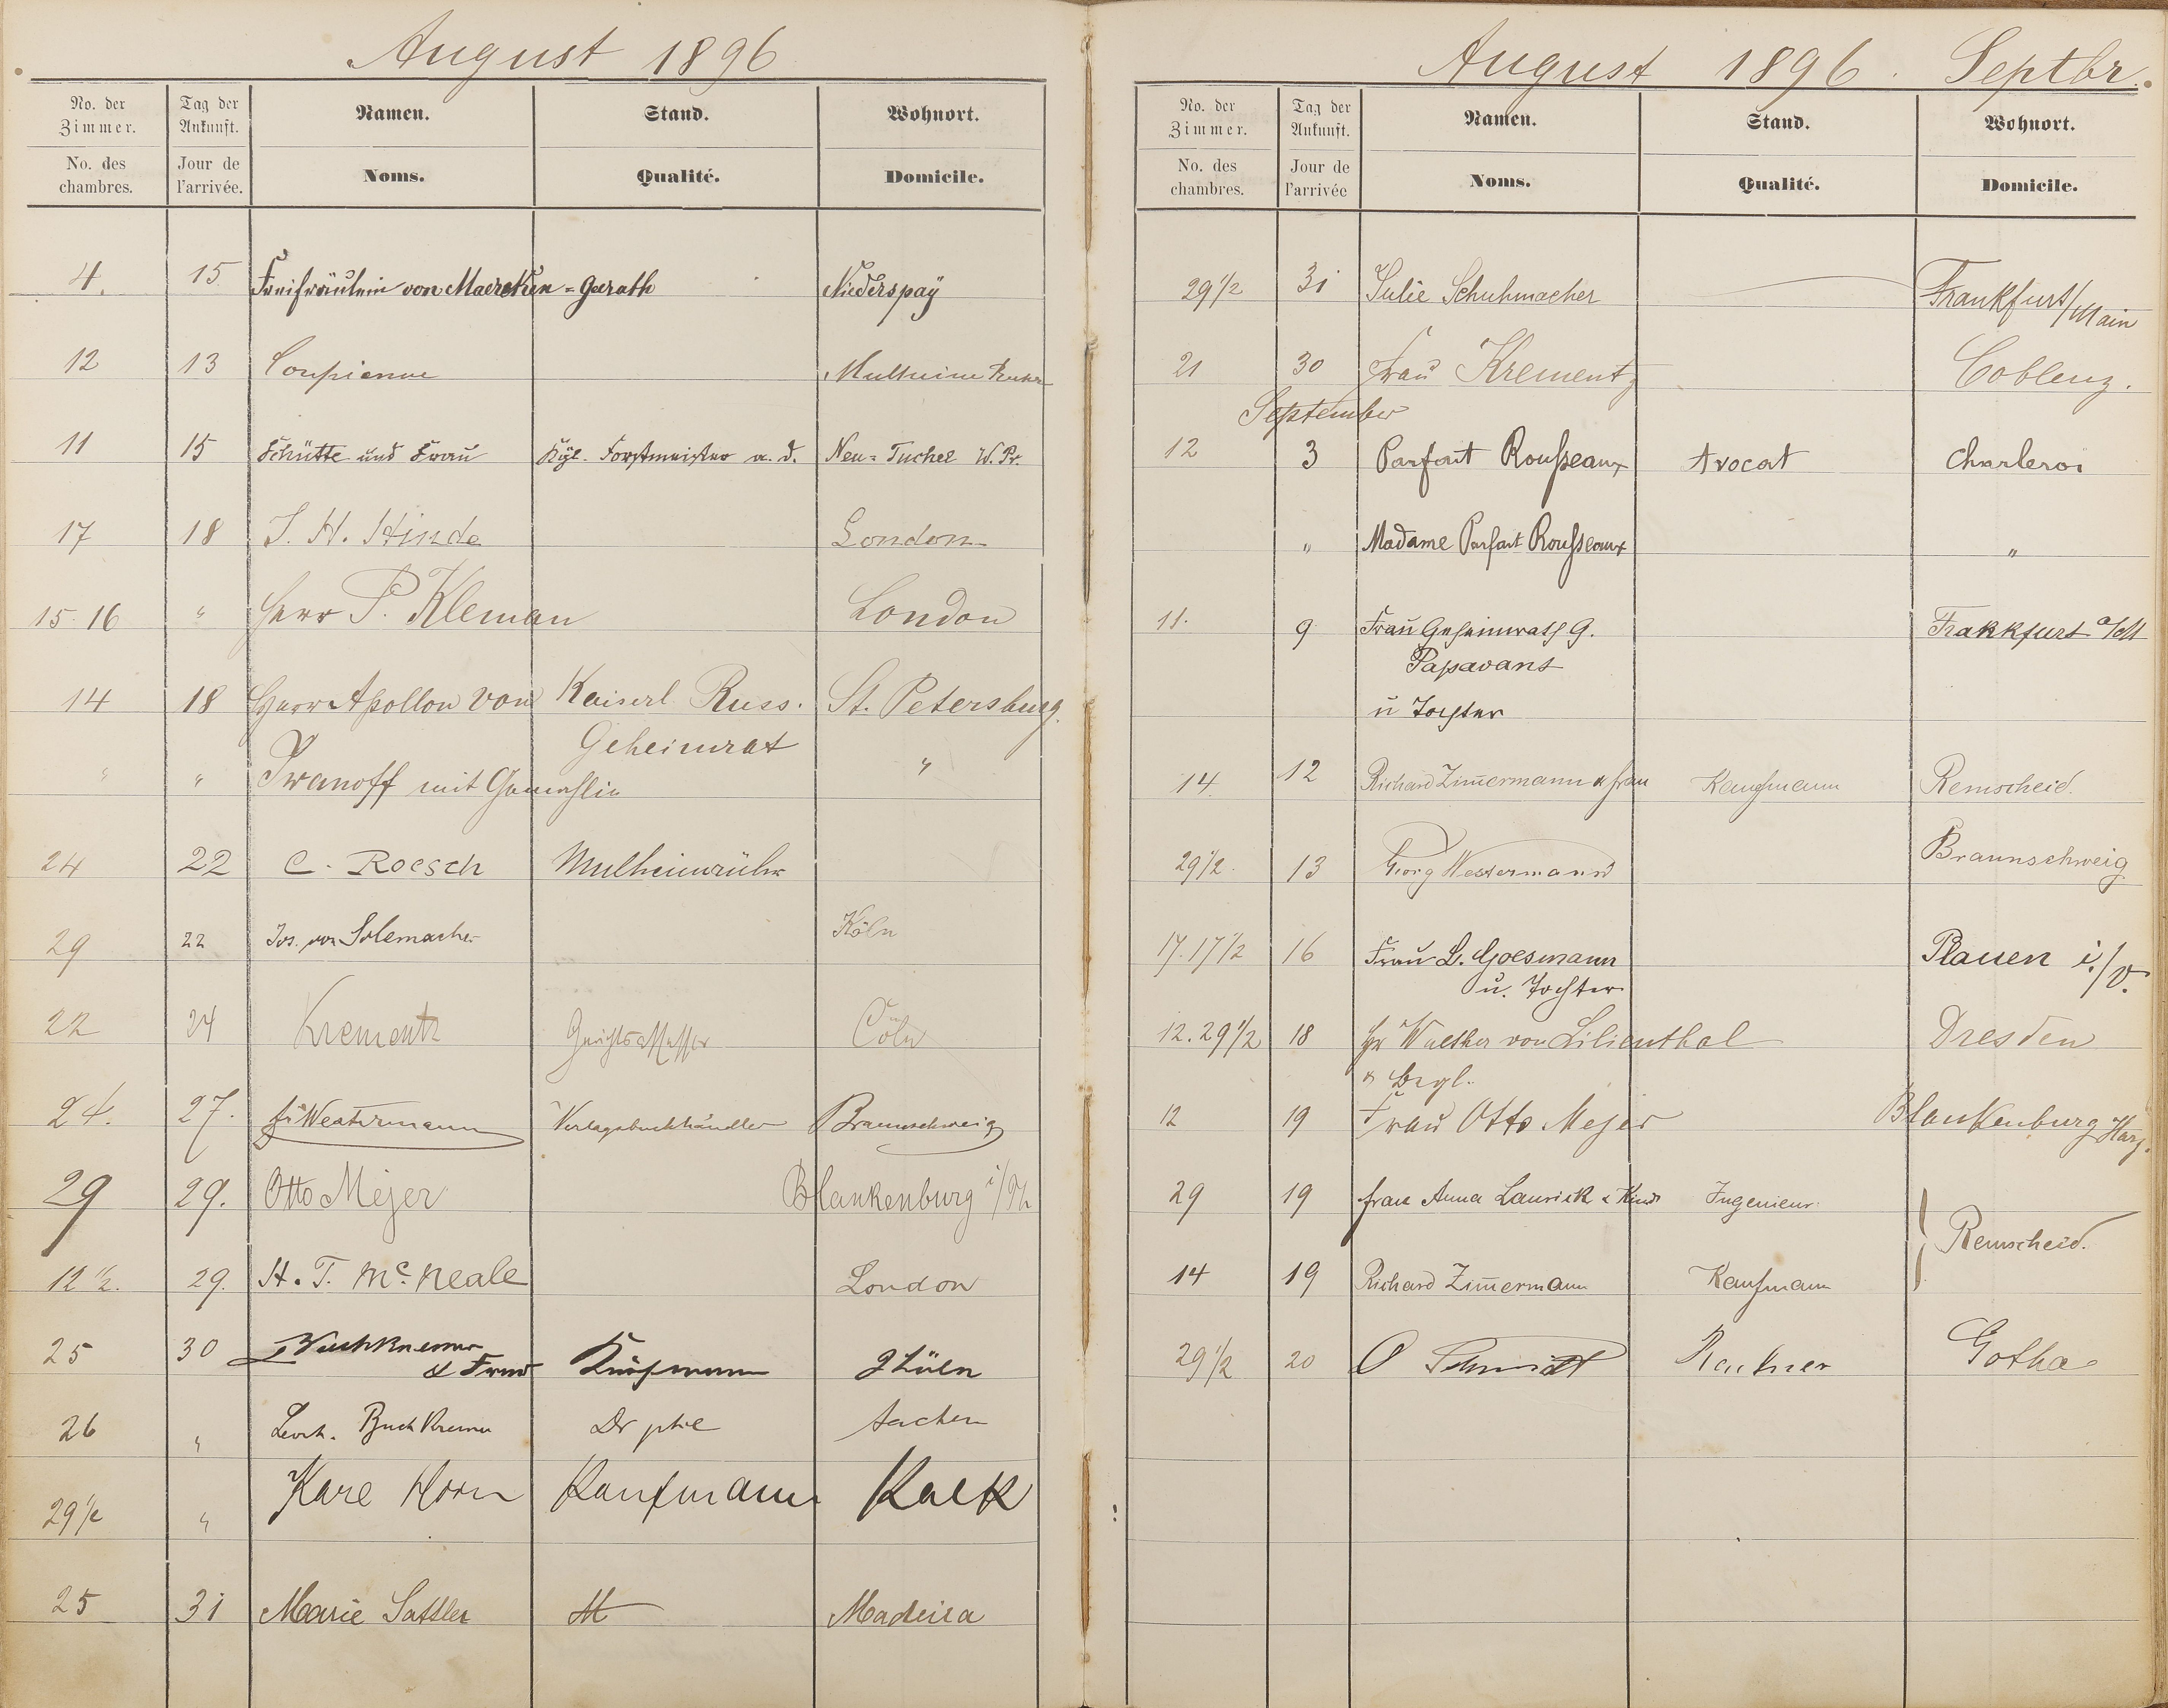 August 1896
No. der Zimmer. Tag der Ankunft. Namen. Stand. Wohnort.
No. des chambres. Jour de l'arrivée. Noms. Qualité. Domicile.
4. 15 Freifräulein von - Garath Niederspay
12 13 Coupienne
11 15 Schütte und Frau Kgl. Forstmeister a. D. Neu-Tuchel W. Pr.
17 18 J. H. Hinde London
15. 16 " Herr P. Kleman London
14 18 Herr Apollon von Kaiserl. Russ. St. Petersburg.
Geheimrat
" " Iwanoff mit Gemahlin "
24 22 C. Roesch Mulheimruhr
29 22 Jos. von Solemacher Köln
22 24 Krementz Gerichtsassessor Cöln
24. 27. Westermann Verlagsbuchhändler Braunschweig
29 29. Otto Mejer Blankenburg i/H
12 ½. 29. H. T. Mc. Neale London
25 30
& Frau Kaufmann
26 " Leonh. Buchkremer Dr phil Aachen
29½ " Karl Horn Kaufmann Kalk
25 31 Marie Sattler Madeira
August 1896. Septbr.
No. der Zimmer. Tag der Ankunft. Namen. Stand. Wohnort.
No. des chambres. Jour de l'arrivée Noms. Qualité. Domicile.
29½ 31 Julie Schuhmacher Frankfurt/Main
21 30 Frau Krementz Coblenz.
September
12 3 Parfait Rousseaux Avocat Charleroi
" Madame Parfait Rousseaux "
11. 9 Frau Geheimrath G. Frakkfurt a/M
Passavant
u Tochter
14. 12 Richard Zimermann & Frau Kaufmann Remscheid.
29½. 13 Georg Westermann Braunschweig
17. 17½ 16 Frau L. Goesmann Plauen i./V.
u. Tochter
12. 29½ 18 Hr Walther von Lilienthal Dresden
& Begl.
12 19 Frau Otto Mejer Blankenburg Harz.
29 19 Frau Anna & Kind Ingenieur
Remscheid.
14 19 Richard Zimermann Kaufmann
29½ 20 O Schmidt Rentner Gotha